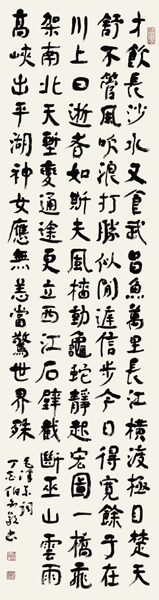 才飲長沙水又食武昌魚萬里長江橫渡極目楚天
舒不管風吹浪打勝似閒庭信步今日得寬餘子在
川上曰逝者如斯夫風檣動龜蛇靜起宏圖一橋飛
架南北天塹變通途更立西江石壁截斷巫山雲雨
高峽出平湖神女應無恙當驚世界殊
毛澤東詞
丁亥伯